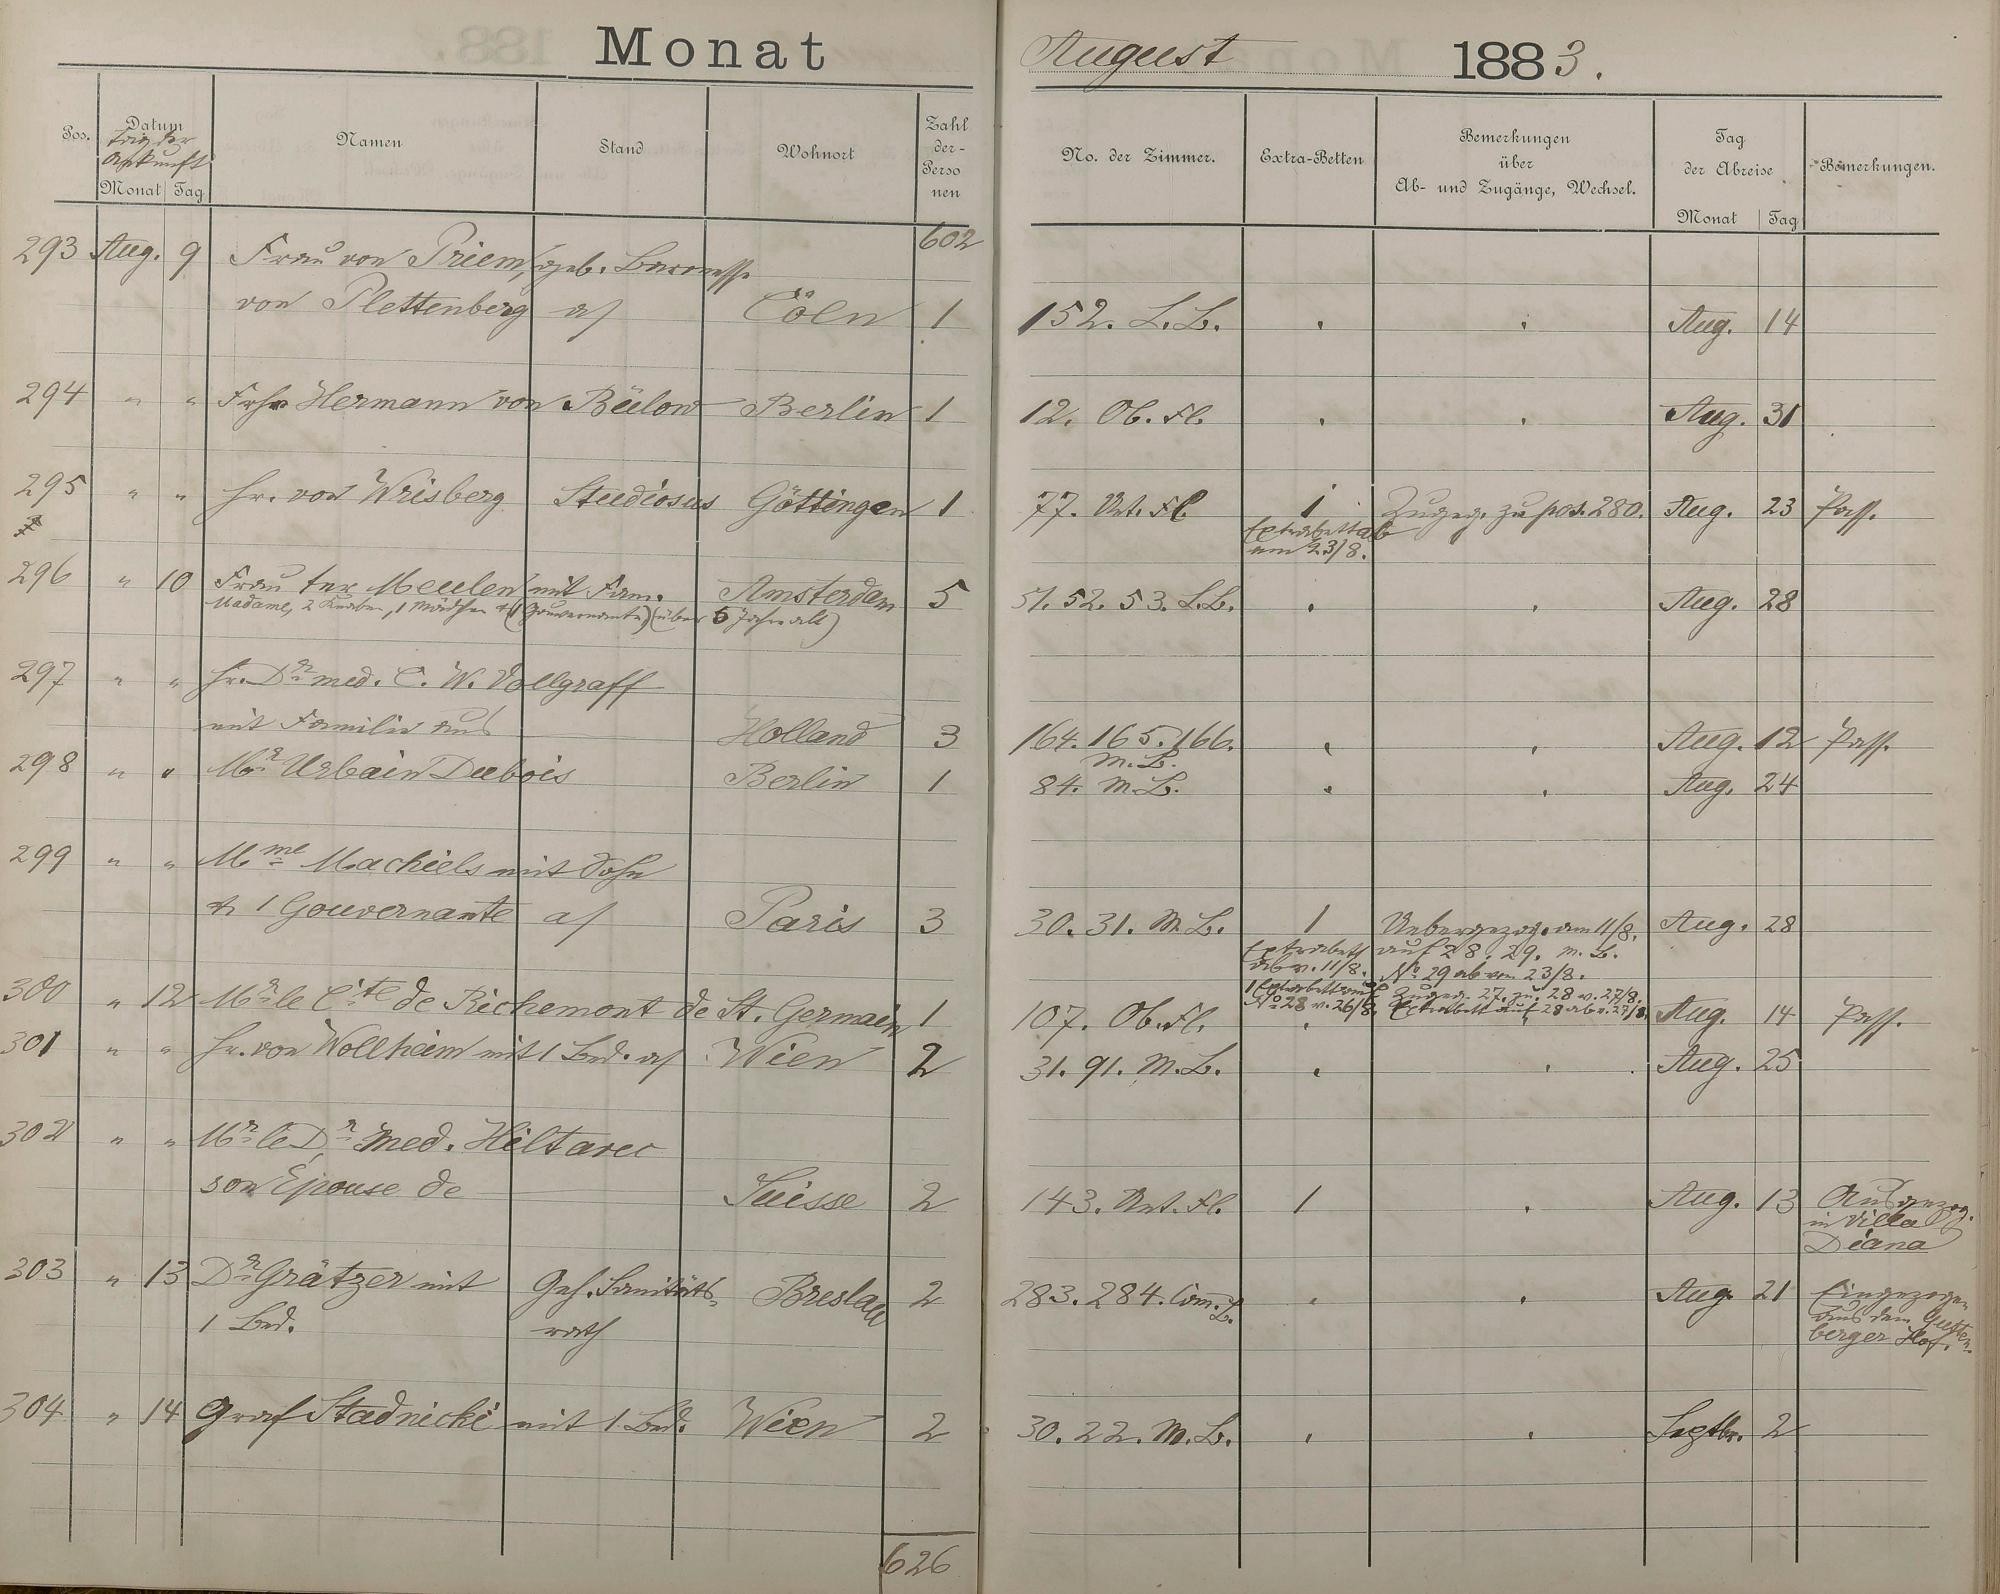 Monat August 1883.
Pos. Datum Namen Stand Wohnort Zahl der Personen No. der Zimmer. Extra-Betten Bemerkungen über Ab- und Zugänge, Wechsel. Tag der Abreise Bemerkungen.
Tag der Ankunft
Monat Tag Monat Tag
602
293 Aug. 9 Frau von Priem, geb. Baronesse
von Plettenberg a/ Cöln 1 152. L.B. Aug. 14
294 " " Frhr Hermann von Bülow Berlin 1 12. Ob. Fl. Aug. 31
295 " " Hr. von Wrisberg Studiosus Göttingen 1 77. Unt. Fl. 1 Zugeg. zu pos. 280. Aug. 23 Pass.
Extrabett ab
am 23/8.
296 " 10 Frau ter Meulen mit Fam. Amsterdam 5 51. 52. 53. L.B. Aug. 28
Madame, 2 Knaben, 1 Mädchen & (1 Gouvernante) (über 6 Jahre alt)
297 " " Hr. Dr. med. C. W. Vollgraff
mit Familie aus Holland 3 164. 165. 166. Aug. 12 Pass.
M.B.
298 " " Mr. Urbain Dubois Berlin 1 84. M.B. Aug. 24
299 " " Mme Machiels mit Sohn
& 1 Gouvernante a/ Paris 3 30. 31. M.B. 1 Uebergezog. am 11/8. Aug. 28
Extrabett auf 28. 29. M.B.
ab v. 11/8. No 29 ab vom 23/8.
1 Extrabett auf Zugeg. 27. zu 28 v. 27/8.
No 28 v. 26/8. Extrabett auf 28 ab v. 27/8.
300 " 12 Mr. le Cte de Richemont de St. Germain 1 107. Ob. Fl. Aug. 14 Pass.
301 " " Hr. von Wollheim mit 1 Bed. a/ Wien 2 31. 91. M.B. Aug. 25
302 " " Mr. le Dr. Med. Hiltarec
son Epouse de Suisse 2 143. Unt. Fl. 1 Aug. 13 Ausgezog.
in Villa
Diana
303 " 13 Dr. Grätzer mit Geh. Sanitäts- Breslau 2 283. 284. Com. B. Aug. 21 Eingezogen
1 Bed. rath aus dem Gutten-
berger Hof.
304 " 14 Graf Stadnicki mit 1 Bed. Wien 2 30. 22. M.B. Septbr. 2
626